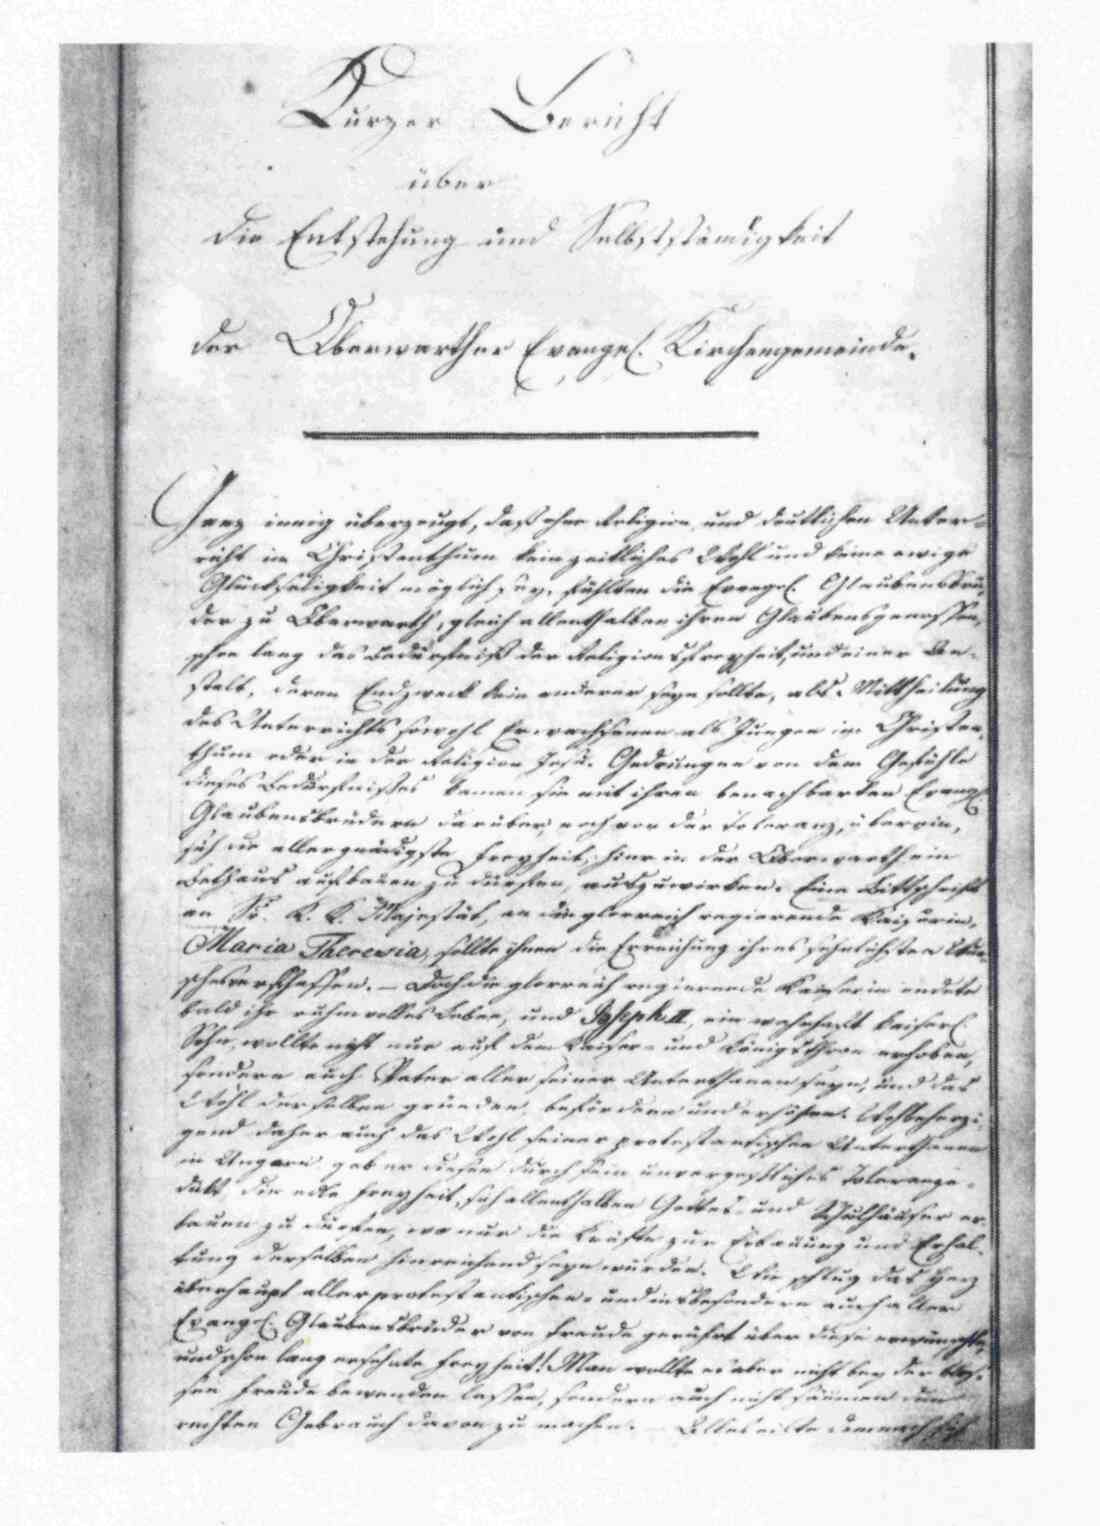 Kurzer Bericht
über
die Entstehung und Selbstständigkeit
der Oberwarther Evangel. Kirchengemeinde.
Ganz innig überzeugt, daß ohne Religion und deutlichen Unter-
richt im Christenthum kein zeitliches Wohl und keine ewige
Glückseligkeit möglich sey, fühlten die Evangel. Glaubensbrü-
der zu Oberwarth, gleich allenthalben ihren Glaubensgenossen,
schon lang das Bedürfniß der Religionsfreyheit, und einer An-
stalt, deren Endzweck kein anderer seyn sollte, als Mittheilung
des Unterrichts sowohl Erwachsenen als Jungen im Christen-
thum oder in der Religion Jesu. Gedrungen von dem Gefühle
dieses Bedürfnißes kamen sie mit ihren benachbarten Evangl.
Glaubensbrüdern darüber, noch vor der Toleranz, überein,
sich die allergnädigste Freyheit, hier in der Oberwarth ein
Bethaus aufbauen zu dürfen, auszuwirken. Eine Bittschrift
an Se. K. K. Majestät, an die glorreich regierende Kaiserin,
Maria Theresia, sollte ihnen die Erreichung ihres sehnlichsten Wun-
sches verschaffen. – Doch die glorreich regierende Kaiserin endete
bald ihr ruhmvolles Leben, und Joseph II, ein wahrhaft kaiserl.
Sohn, wollte nicht nur auf dem Kaiser- und Königsthron erhoben,
sondern auch Vater aller seiner Unterthanen seyn, und das
Wohl derselben gründen, befördern und erhöhen. Wohlbeherzi-
gend daher auch das Wohl seiner protestantischen Unterthanen
in Ungarn gab er diesen durch sein unvergeßliches Toleranze-
dikt, die edle Freyheit, sich allenthalben Gottes- und Schulhäuser er-
bauen zu dürfen, wo nur die Kräfte zur Erbauung und Erhal-
tung derselben hinreichend seyn würden. Wie schlug das Herz
überhaupt aller protestantischen- und insbesondere auch aller
Evangel. Glaubensbrüder von Freude gerührt über diese erwünschte,
und schon lang ersehnte Freyheit! Man wollte es aber nicht bey der blos-
sen Freude bewenden lassen, sondern auch nicht säumen den
rechten Gebrauch davon zu machen. – Alles eilte demnach sich